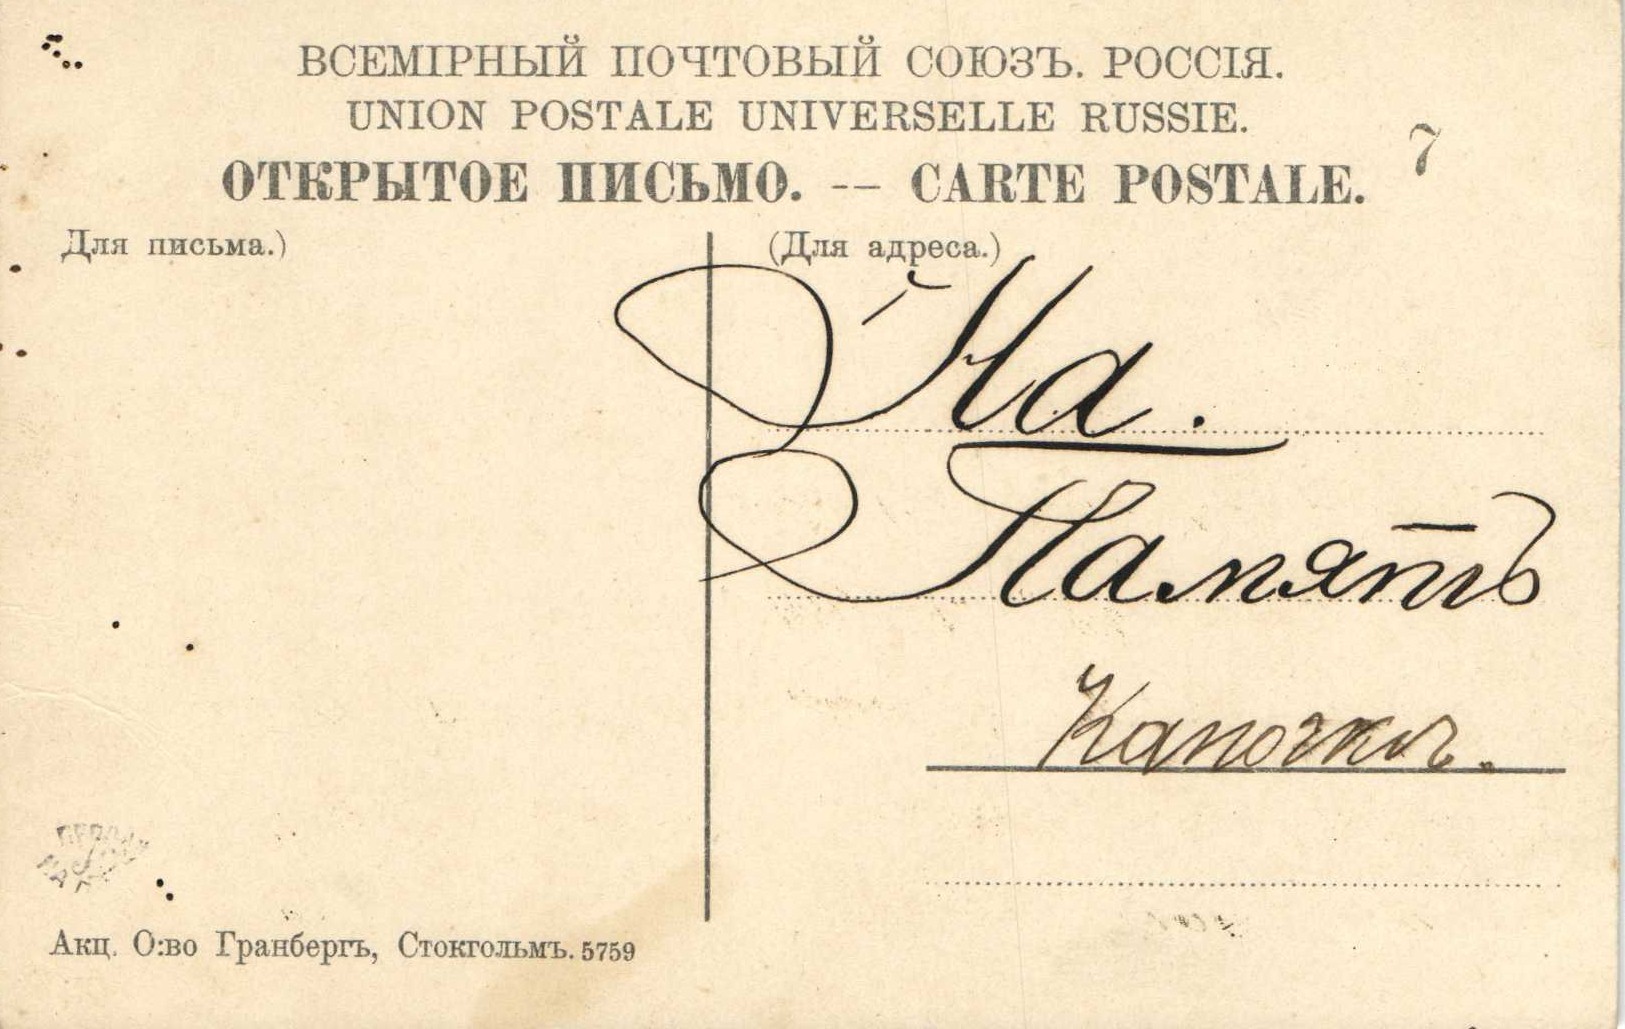 ВСЕМІРНЫЙ ПОЧТОВЫЙ СОЮЗЪ. РОССІЯ.
UNION POSTALE UNIVERSELLE RUSSIE.
ОТКРЫТОЕ ПИСЬМО. -- CARTE POSTALE.
7
Для письма.)
(Для адреса.)
На.
Память
Капочкѣ.
Акц. О:во Гранбергъ, Стокгольмъ. 5759